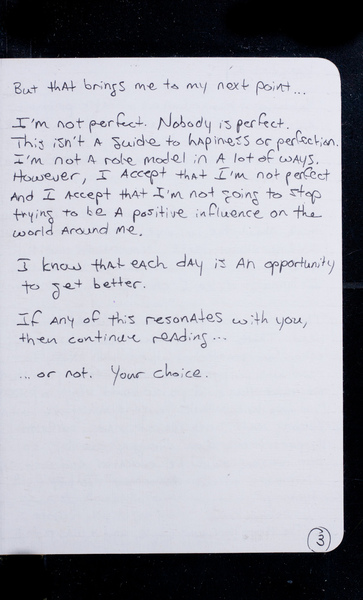 But that brings me to my next point...
I'm not perfect. Nobody is perfect.
This isn't a guide to hapiness or perfection.
I'm not a role model in a lot of ways.
However, I accept that I'm not perfect
and I accept that I'm not going to stop
trying to be a positive influence on the
world around me.
I know that each day is an opportunity
to get better.
If any of this resonates with you,
then continue reading...
...or not. Your choice.
3